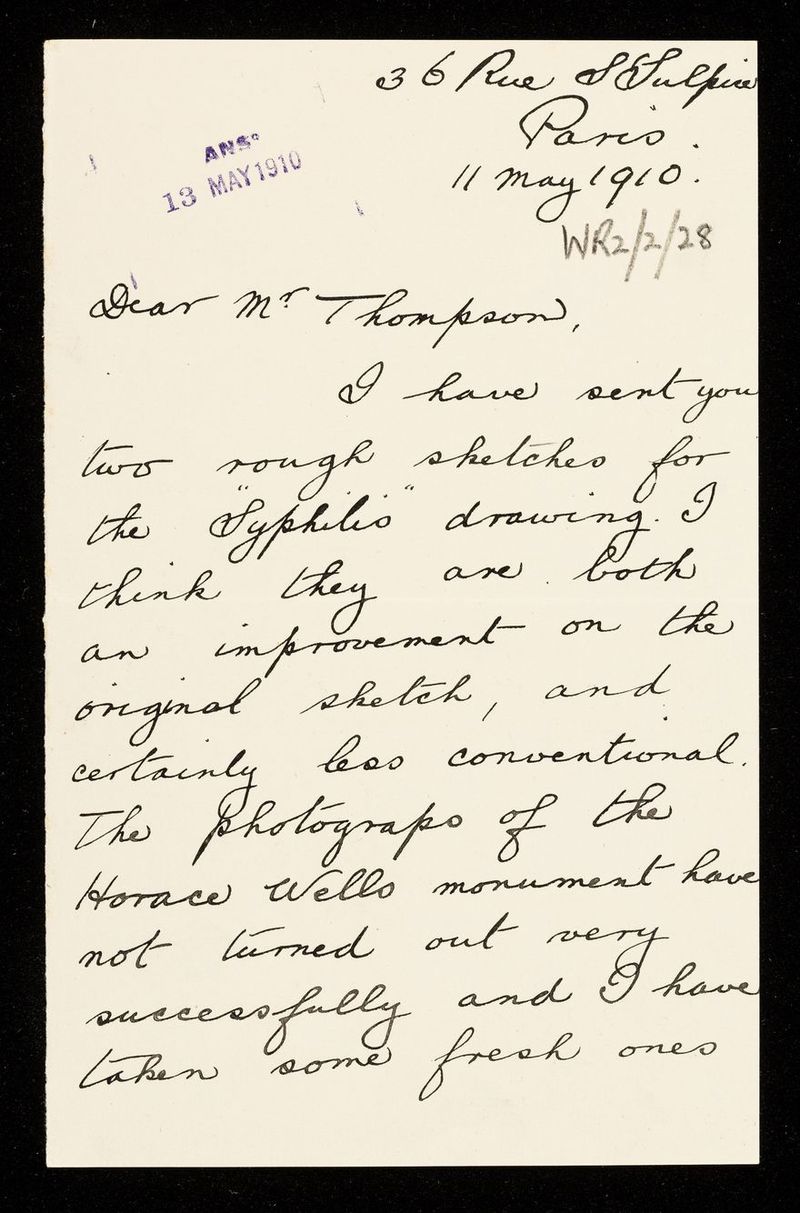 36 Rue S Sulpice
Paris.
11 May 1910.
ANSD
13 MAY 1910
WR2/2/28
Dear Mr Thompson,
I have sent you
two rough sketches for
the "Syphilis" drawing. I
think they are both
an improvement on the
original sketch, and
certainly less conventional.
The photograps of the
Horace Wells monument have
not turned out very
successfully and I have
taken some fresh ones